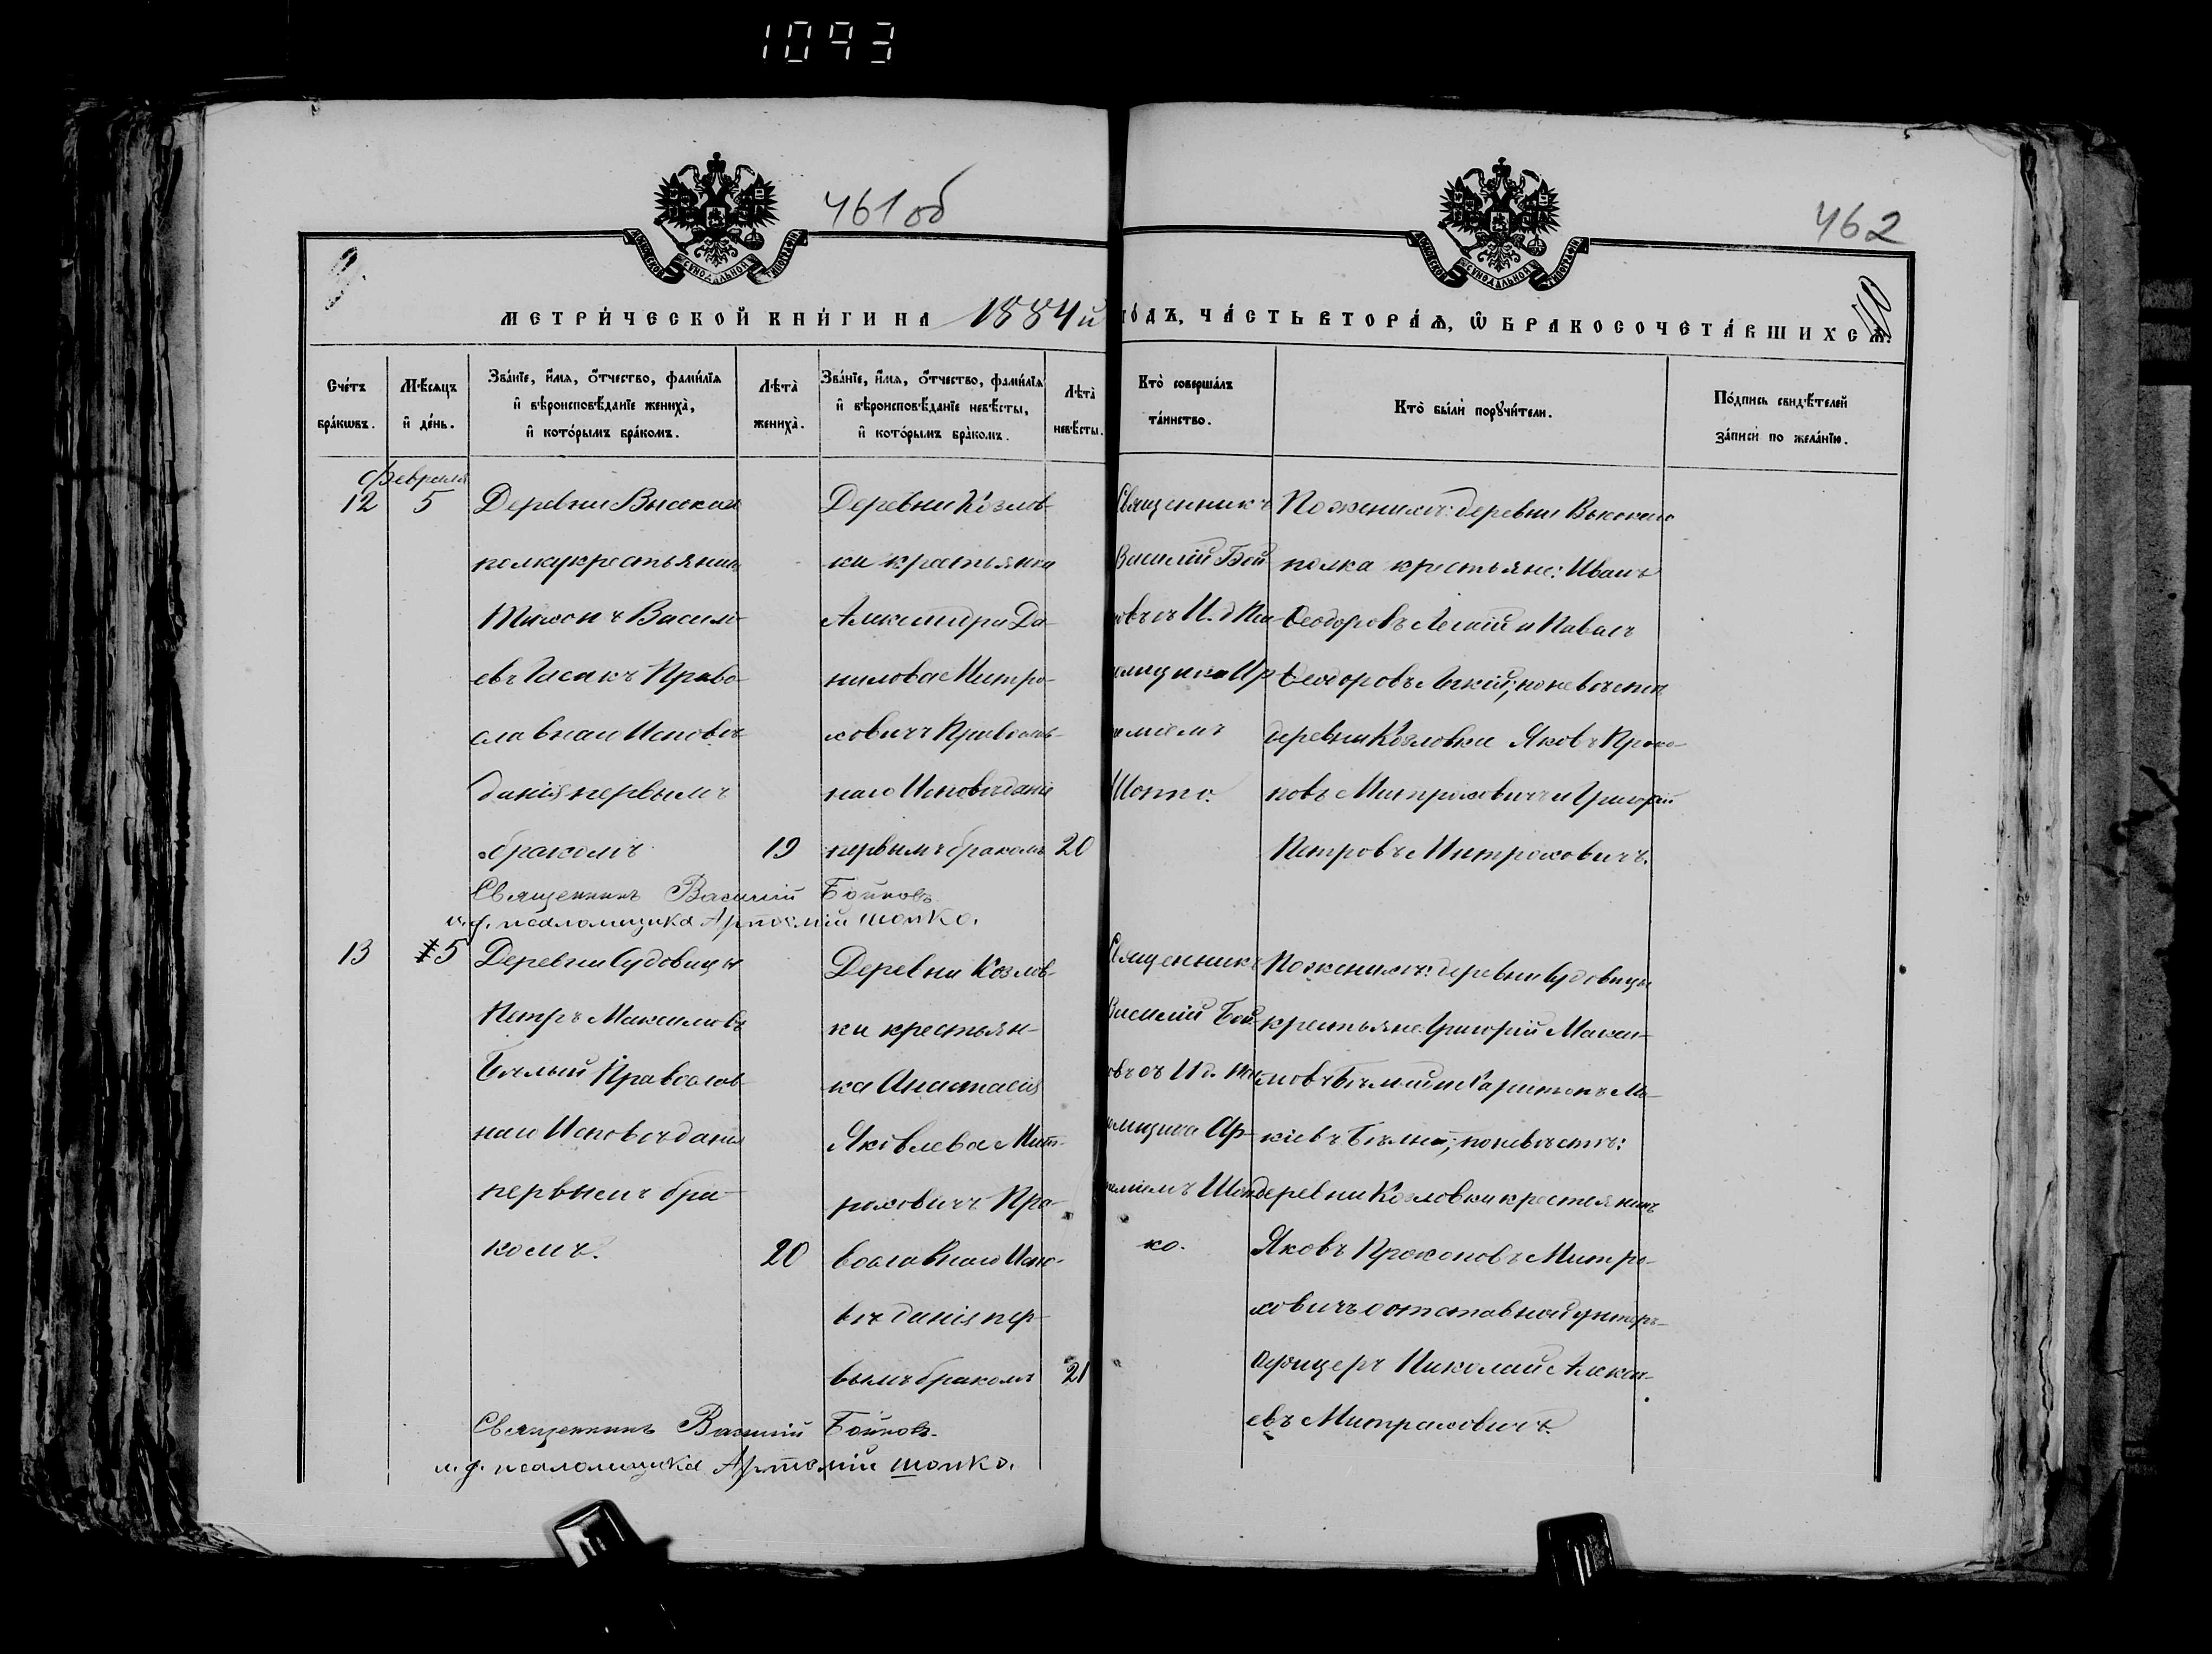 1093
461 об
462
9.
10
МОСКОВСКОЙ СУНОДАЛЬНОЙ ТИПОГРАФІИ
МОСКОВСКОЙ СУНОДАЛЬНОЙ ТИПОГРАФІИ
МЕТРИ́ЧЕСКОЙ КНИ́ГИ НА 1884 й ГО́ДЪ, ЧА́СТЬ ВТОРА́Ѧ, Ѡ БРАКОСОЧЕТА́ВШИХСѦ.
Сче́тъ бра́кѡвъ.
Мѣ́сяцъ и҆ де́нь.
Зва́нїе, и҆́мя, ѻ҆́тчество, фами́лїя
и҆ вѣроисповѣ́данїе жениха̀,
и҆ кото́рымъ бра́комъ.
Лѣта̀ жениха̀.
Зва́нїе, и҆́мя, ѻ҆́тчество, фами́лїя
и҆ вѣроисповѣ́данїе невѣ́сты,
и҆ кото́рымъ бра́комъ.
Лѣта̀ невѣ́сты.
Кто̀ соверша́лъ
та́инство.
Кто̀ бы́ли порꙋчи́тели.
По́дпись свидѣ́телей
за́писи по жела́нїю.
Февраля
12
5
Деревни Высокаго
полку крестьянинъ
Тихонъ Василь-
евъ Гасакъ Право-
славнаго Исповѣ-
данія первымъ
бракомъ
19
Деревни Козлов-
ки крестьянка
Александра Да-
нилова Митро-
ховичъ Православ-
наго Исповѣданія
первымъ бракомъ
20
Священникъ
Василій Бой
овъ съ И. д Пса
омщика Ар
теміемъ
Шопко.
По женихѣ: деревни Высокаго
полка крестьяне: Иванъ
Ѳеодоровъ Легкій и Павелъ
Ѳеодоровъ Легкій; по невѣстѣ
деревни Козловки Яковъ Проко-
повъ Митроховичъ и Григорій
Петровъ Митроховичъ.
Священникъ Василій Бойковъ
и. д. псаломщика Артемій Шопко.
13
5
Деревни Судовицы
Петръ Максимовъ
Бѣлый Православ-
наго Исповѣданія
первымъ бра-
комъ.
20
Деревни Козлов-
ки крестьян-
ка Анастасія
Яковлева Мит-
роховичъ Пра-
вославнаго Испо-
вѣданія пер-
вымъ бракомъ
21
Священникъ
Василій Бой
овъ съ И д. Пса
омщика Ар-
теміемъ Шоп
ко.
По женихѣ: деревни Судовицы
крестьяне Григорій Макси-
мовъ Бѣлый и Харитонъ Ма-
кіевъ Бѣлый; по невѣстѣ:
деревни Козловки крестьянинъ
Яковъ Прокоповъ Митро-
ховичъ и отставной унтеръ-
офицеръ Николай Алексѣ-
евъ Митроховичъ.
Священникъ Василій Бойковъ.
и. д. псаломщика Артемій Шопко.